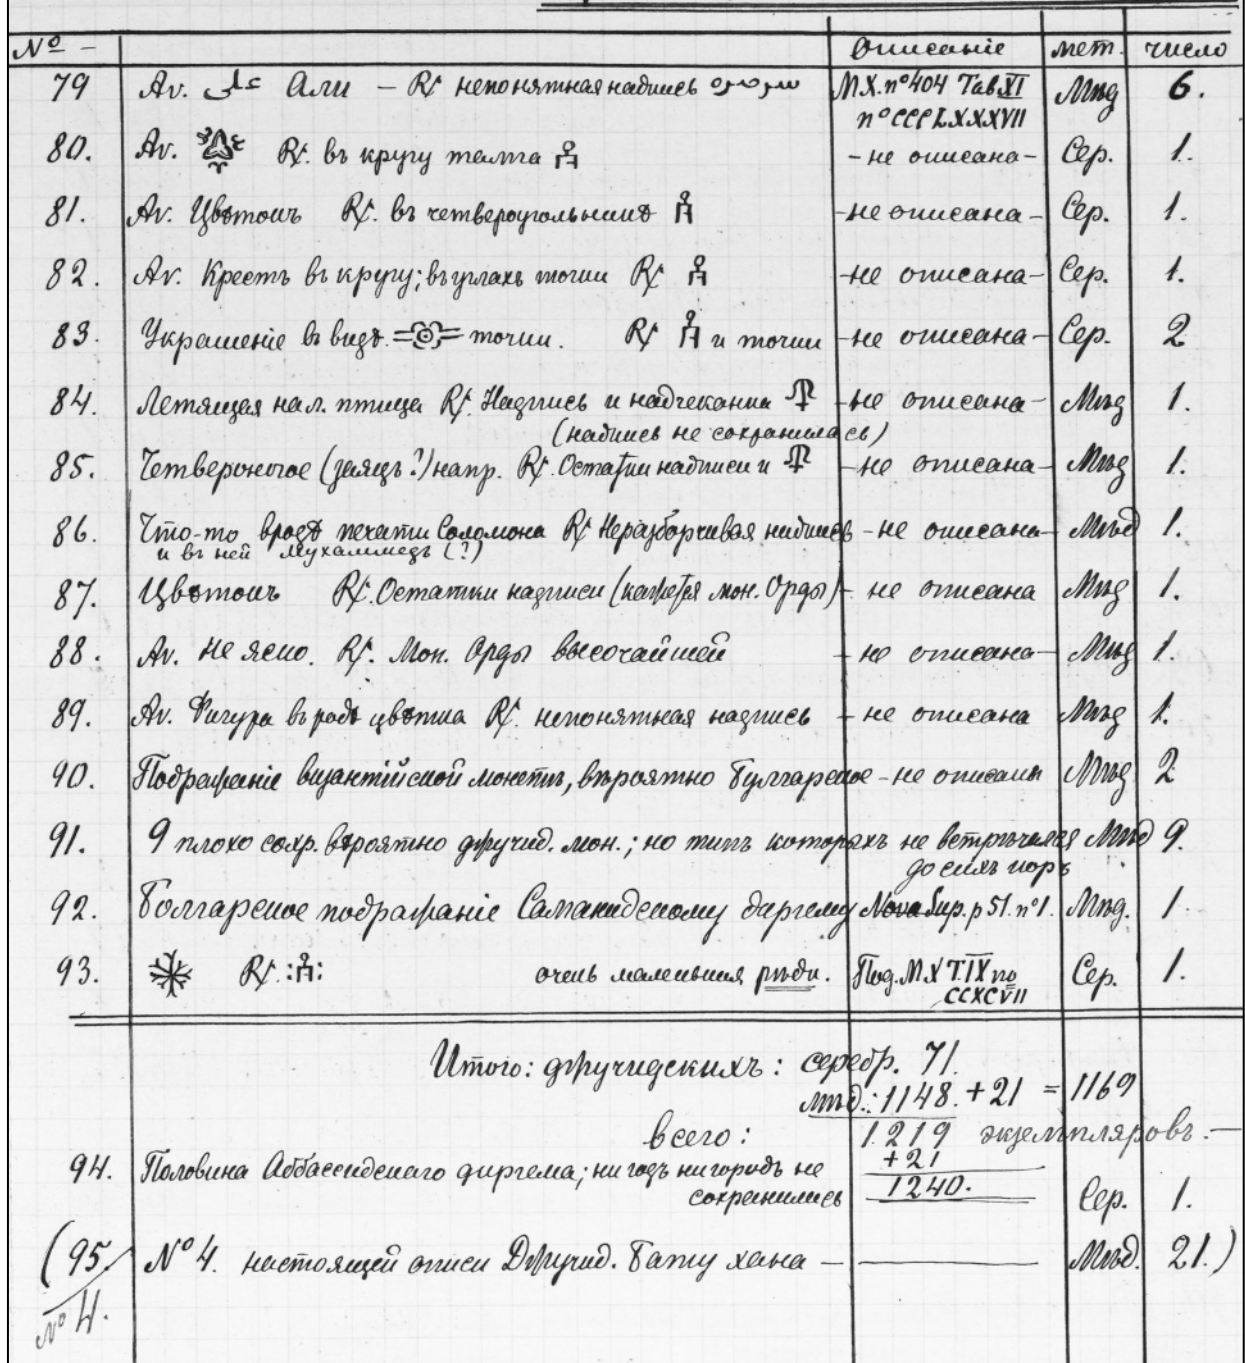 № – Описаніе мет. число
79 Av. علی Али – R/. непонятная надпись М.Х. n° 404 Таб. XI Мѣд 6.
n° CCCLXXXVII
80. Av. R/. въ кругу тамга – не описана – Сер. 1.
81. Av. Цвѣтокъ R/. въ четвероугольникѣ – не описана – Сер. 1.
82. Av. Крестъ въ кругу; въ углахъ точки R/. – не описана – Сер. 1.
83. Украшеніе въ видѣ точки. R/. и точки – не описана – Сер. 2
84. Летящая нал. птица R/. Надпись и надчеканка – не описана – Мѣд 1.
(надпись не сохранилась)
85. Четвероногое (заяцъ?) напр. R/. Остатки надписи и – не описана – Мѣд 1.
86. Что-то вродѣ печати Соломона R/. Неразборчивая надпись – не описана – Мѣд 1.
и въ ней Мухаммедъ (?)
87. Цвѣтокъ R/. Остатки надписи (кажется мон. Орды) – не описана Мѣд 1.
88. Av. Не ясно. R/. Мон. Орды высочайшей – не описана – Мѣд 1.
89. Av. Фигура въ родѣ цвѣтка R/. непонятная надпись – не описана Мѣд 1.
90. Подражаніе византійской монетѣ, вѣроятно Булгарское – не описаны Мѣд 2
91. 9 плохо сохр. вѣроятно джучид. мон.; но типъ которыхъ не встрѣчался Мѣд 9.
до сихъ поръ
92. Болгарское подражаніе Саманидскому диргему Nova Sup. p 51. n° 1. Мѣд. 1.
93. R/. : : очень маленькая рѣдк. Под. М.Х Т. IX no Сер. 1.
CCXCVII
Итого: джучидскихъ: серебр. 71.
мѣд.: 1148. + 21 = 1169
всего: 1219 экземпляровъ. –
+ 21
94. Половина Аббассидскаго диргема; ни годъ ни городъ не 1240.
сохранились Сер. 1.
(95. № 4. настоящей описи Джучид. Бату хана – Мѣд. 21.)
№ 4.